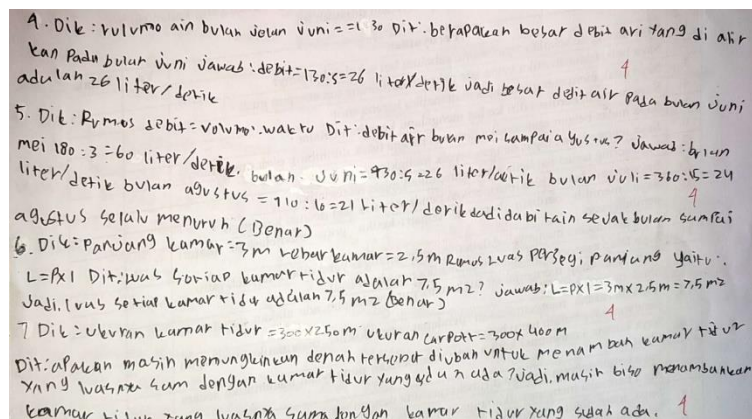 4. Dik: vulumo ain bulan velan vuni == L 30 Dit: berapakan besar debit ari yang di alir
kan Padu bulur vuni vawab: debit=130:5=26 liter/derik vadi besar debit air pada bulan vuni
adulah 26 liter/detik
4
5. Dik: Rumos debit=volumo:waktu Dit: debit air buran moi sampai agustus? Jawab: bulan
mei 180:3=60 liter/detik. bulan vuni=430:5=26 liter/detik bulan vuli=360:15=24
liter/detik bulan agustus = 110:10=21 liter/derik dadi dabitain sevak bulan sampai
agustus selalu menurun (Benar)
4
6. Dik: Panjang kamar=3m rebar kamar=2,5m Rumos Luas persegi panjang yaitu:
L=PXl Dit: luas sotiap kamar tidur adalah 7,5 m2? jawab: L=pxl=3mx2,5m=7,5m2
Jadi, luas setiap kamar tidur adalah 7,5 m2 (benar)
4
7 Dik: ukuran kamar tidur=300x250m ukuran carpott=300x 400m
Dit: apakan masih memungkinkan denah tersebut diubah untuk menambah kamar tidur
yang luasnya sam dengan kamar tidur yang sudah ada? Jadi, masih biso menambahkan
kamar tidur yang luasnya sama dongan kamar tidur yang sudah ada.
4